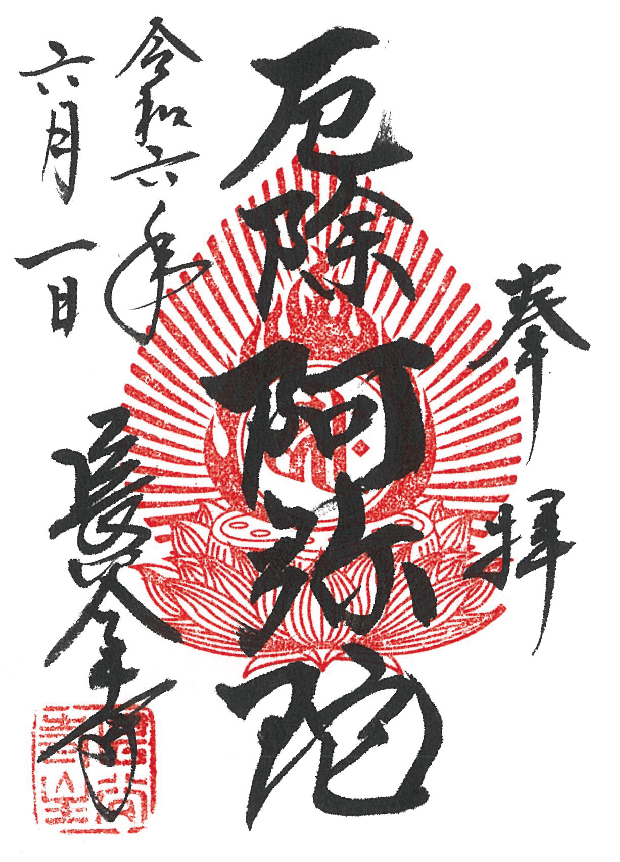 奉拝
厄除阿弥陀
令和六年
六月一日
長全寺